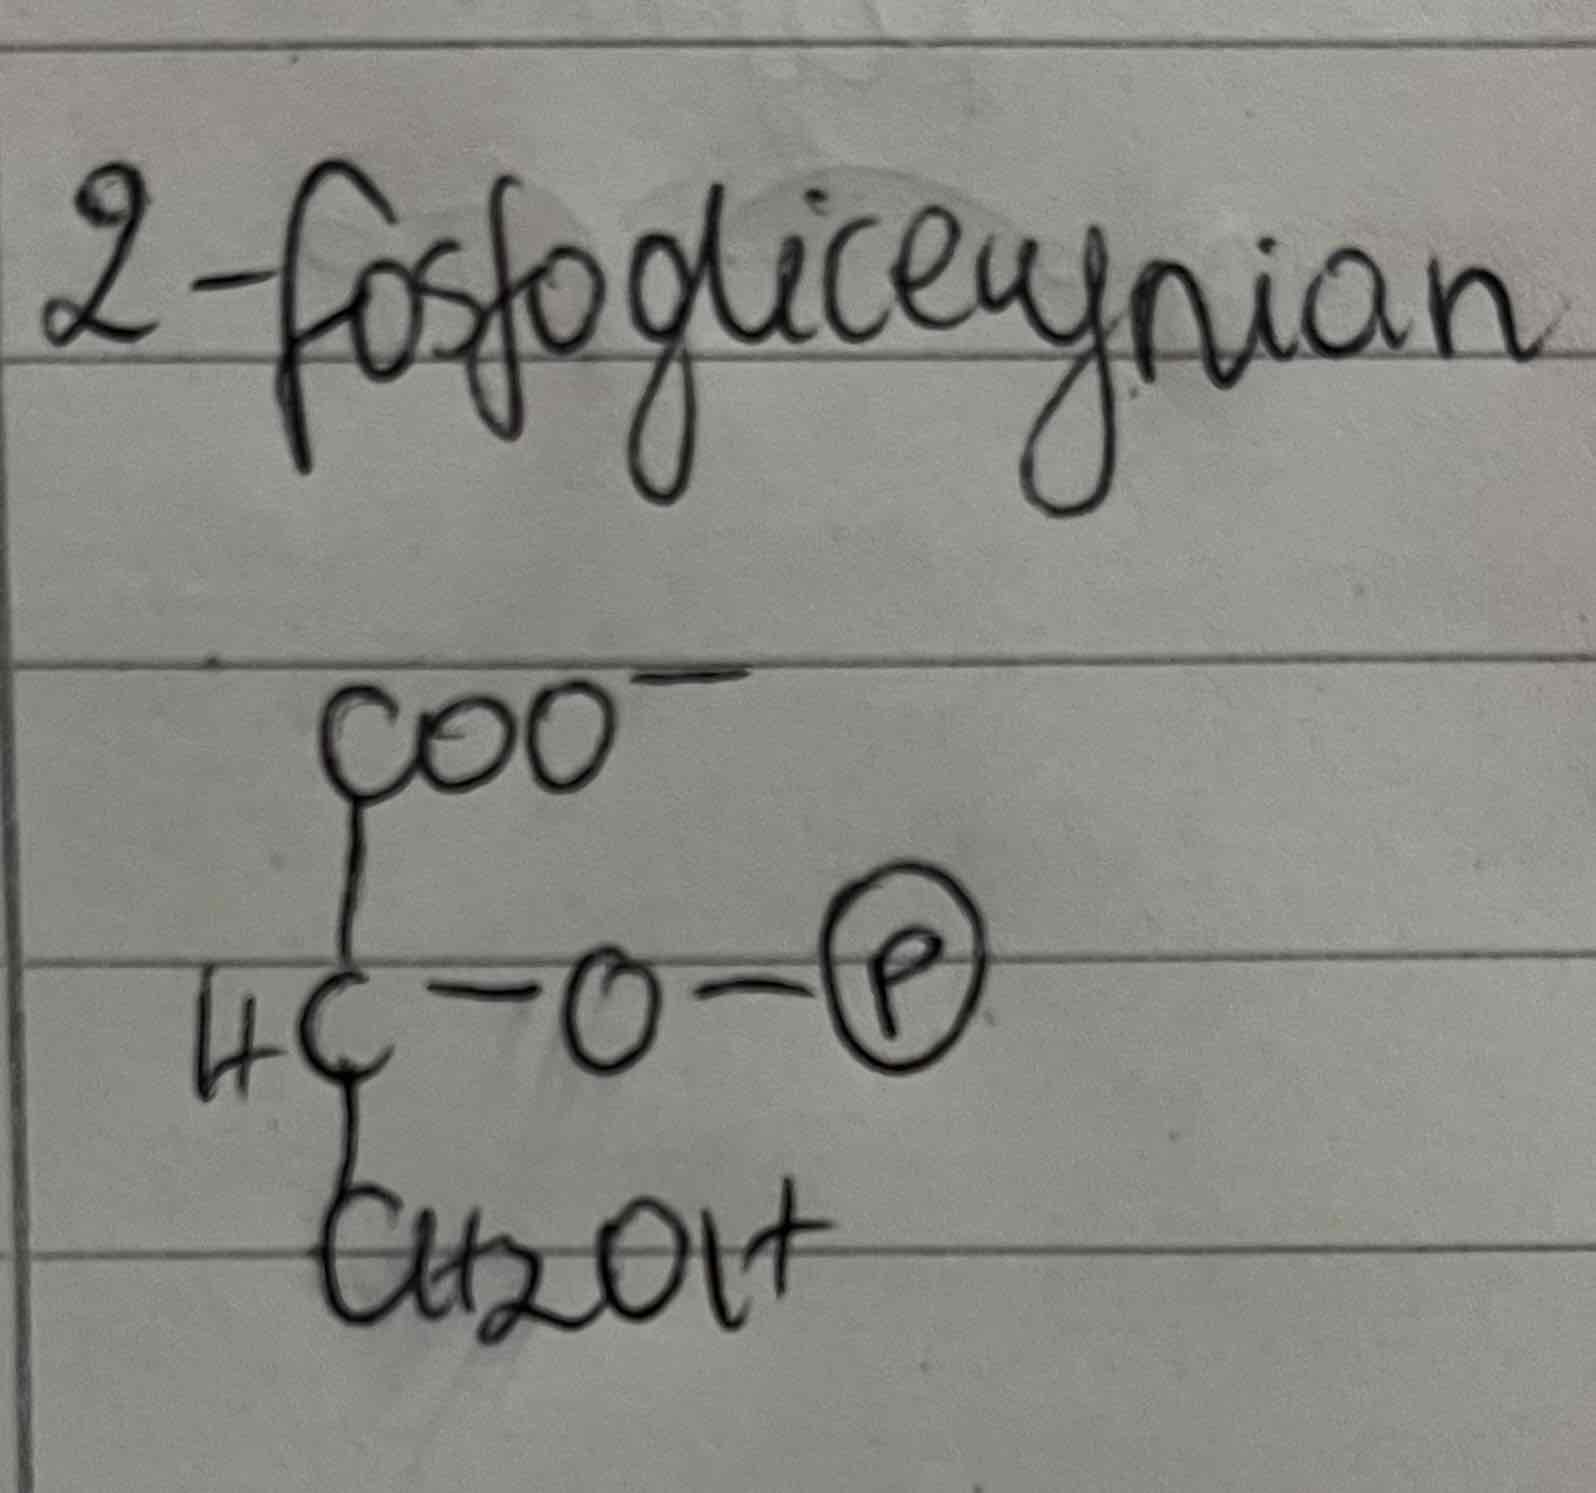 2-fosfoglicerynian
COO⁻
HC-O-P
CH2OH